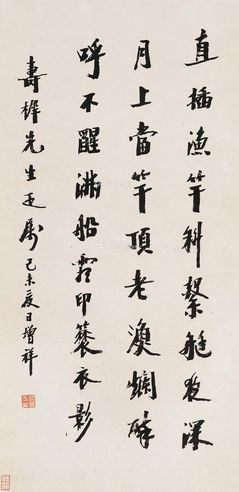 直插漁竿斜繫艇夜深
月上當竿頂老漁爛醉
呼不醒滿船霜印蓑衣影
壽樵先生正屬己未夏日增祥